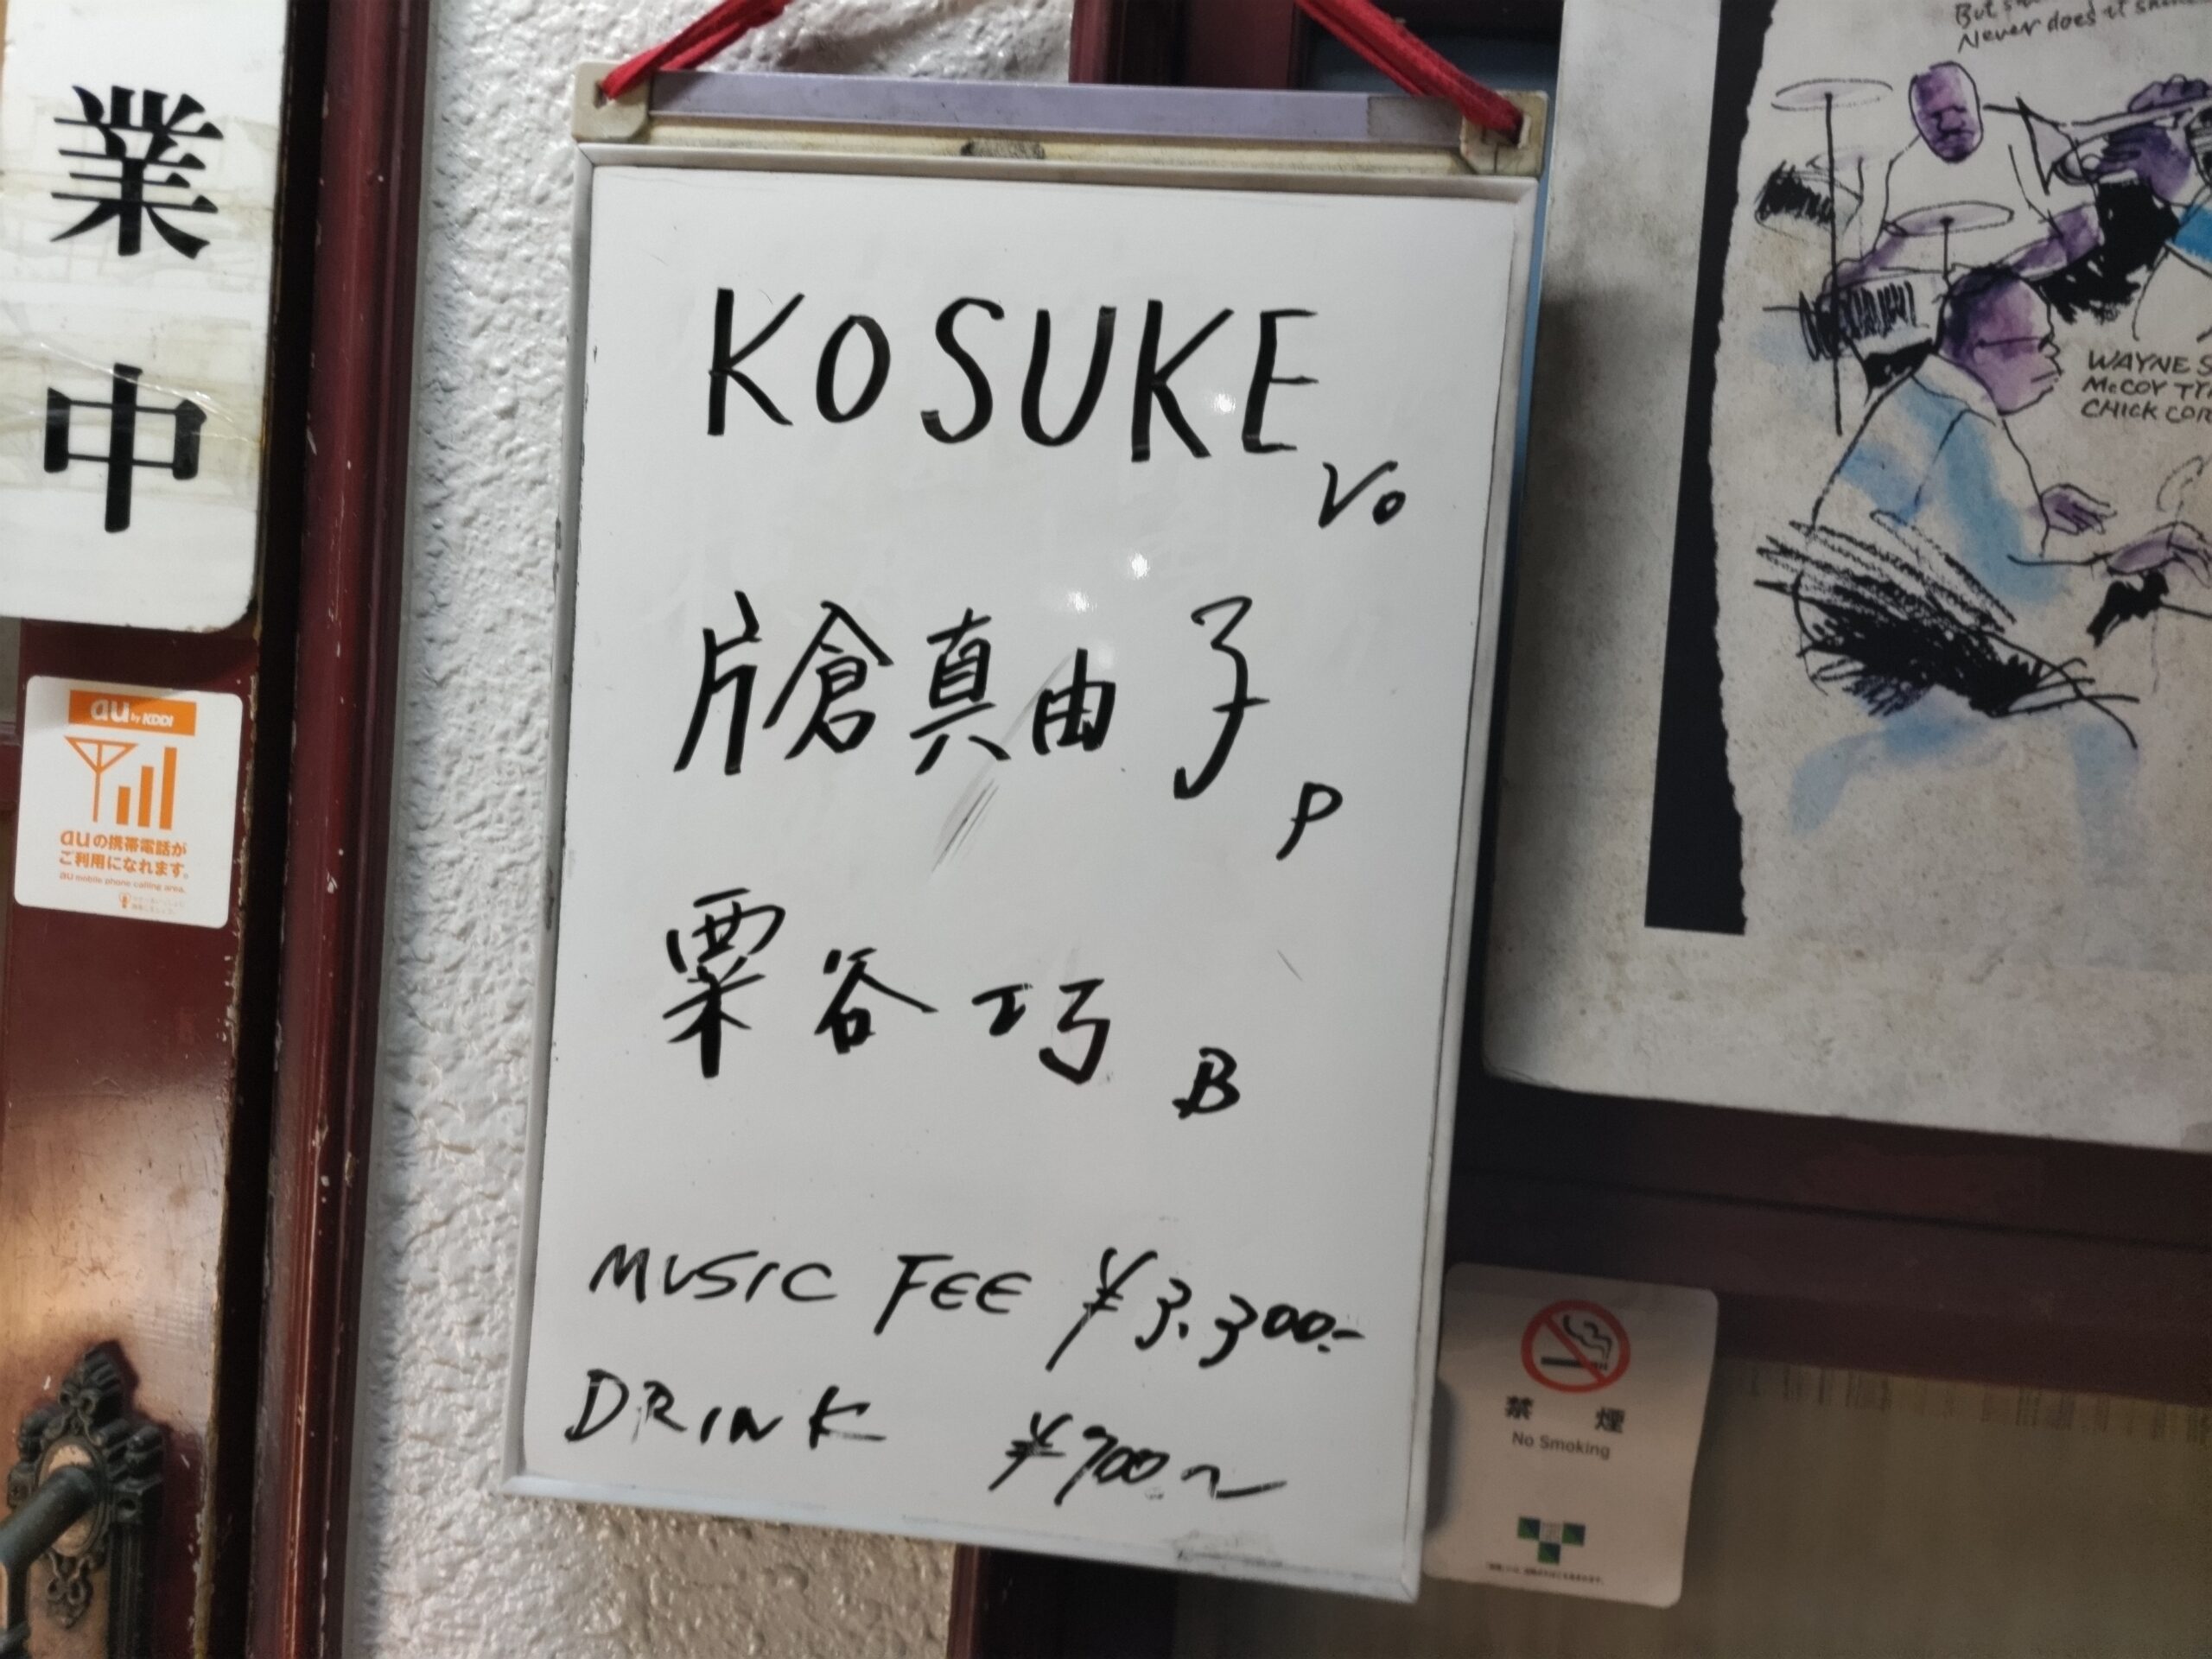 業
中
au by KDDI
auの携帯電話が
ご利用になれます。
au mobile phone calling area.
KOSUKE Vo
片倉真由子 P
粟谷巧 B
MUSIC FEE ¥3,300.-
DRINK ¥700~
Never does it
WAYNE S
McCOY TY
CHICK COR
禁煙
No Smoking